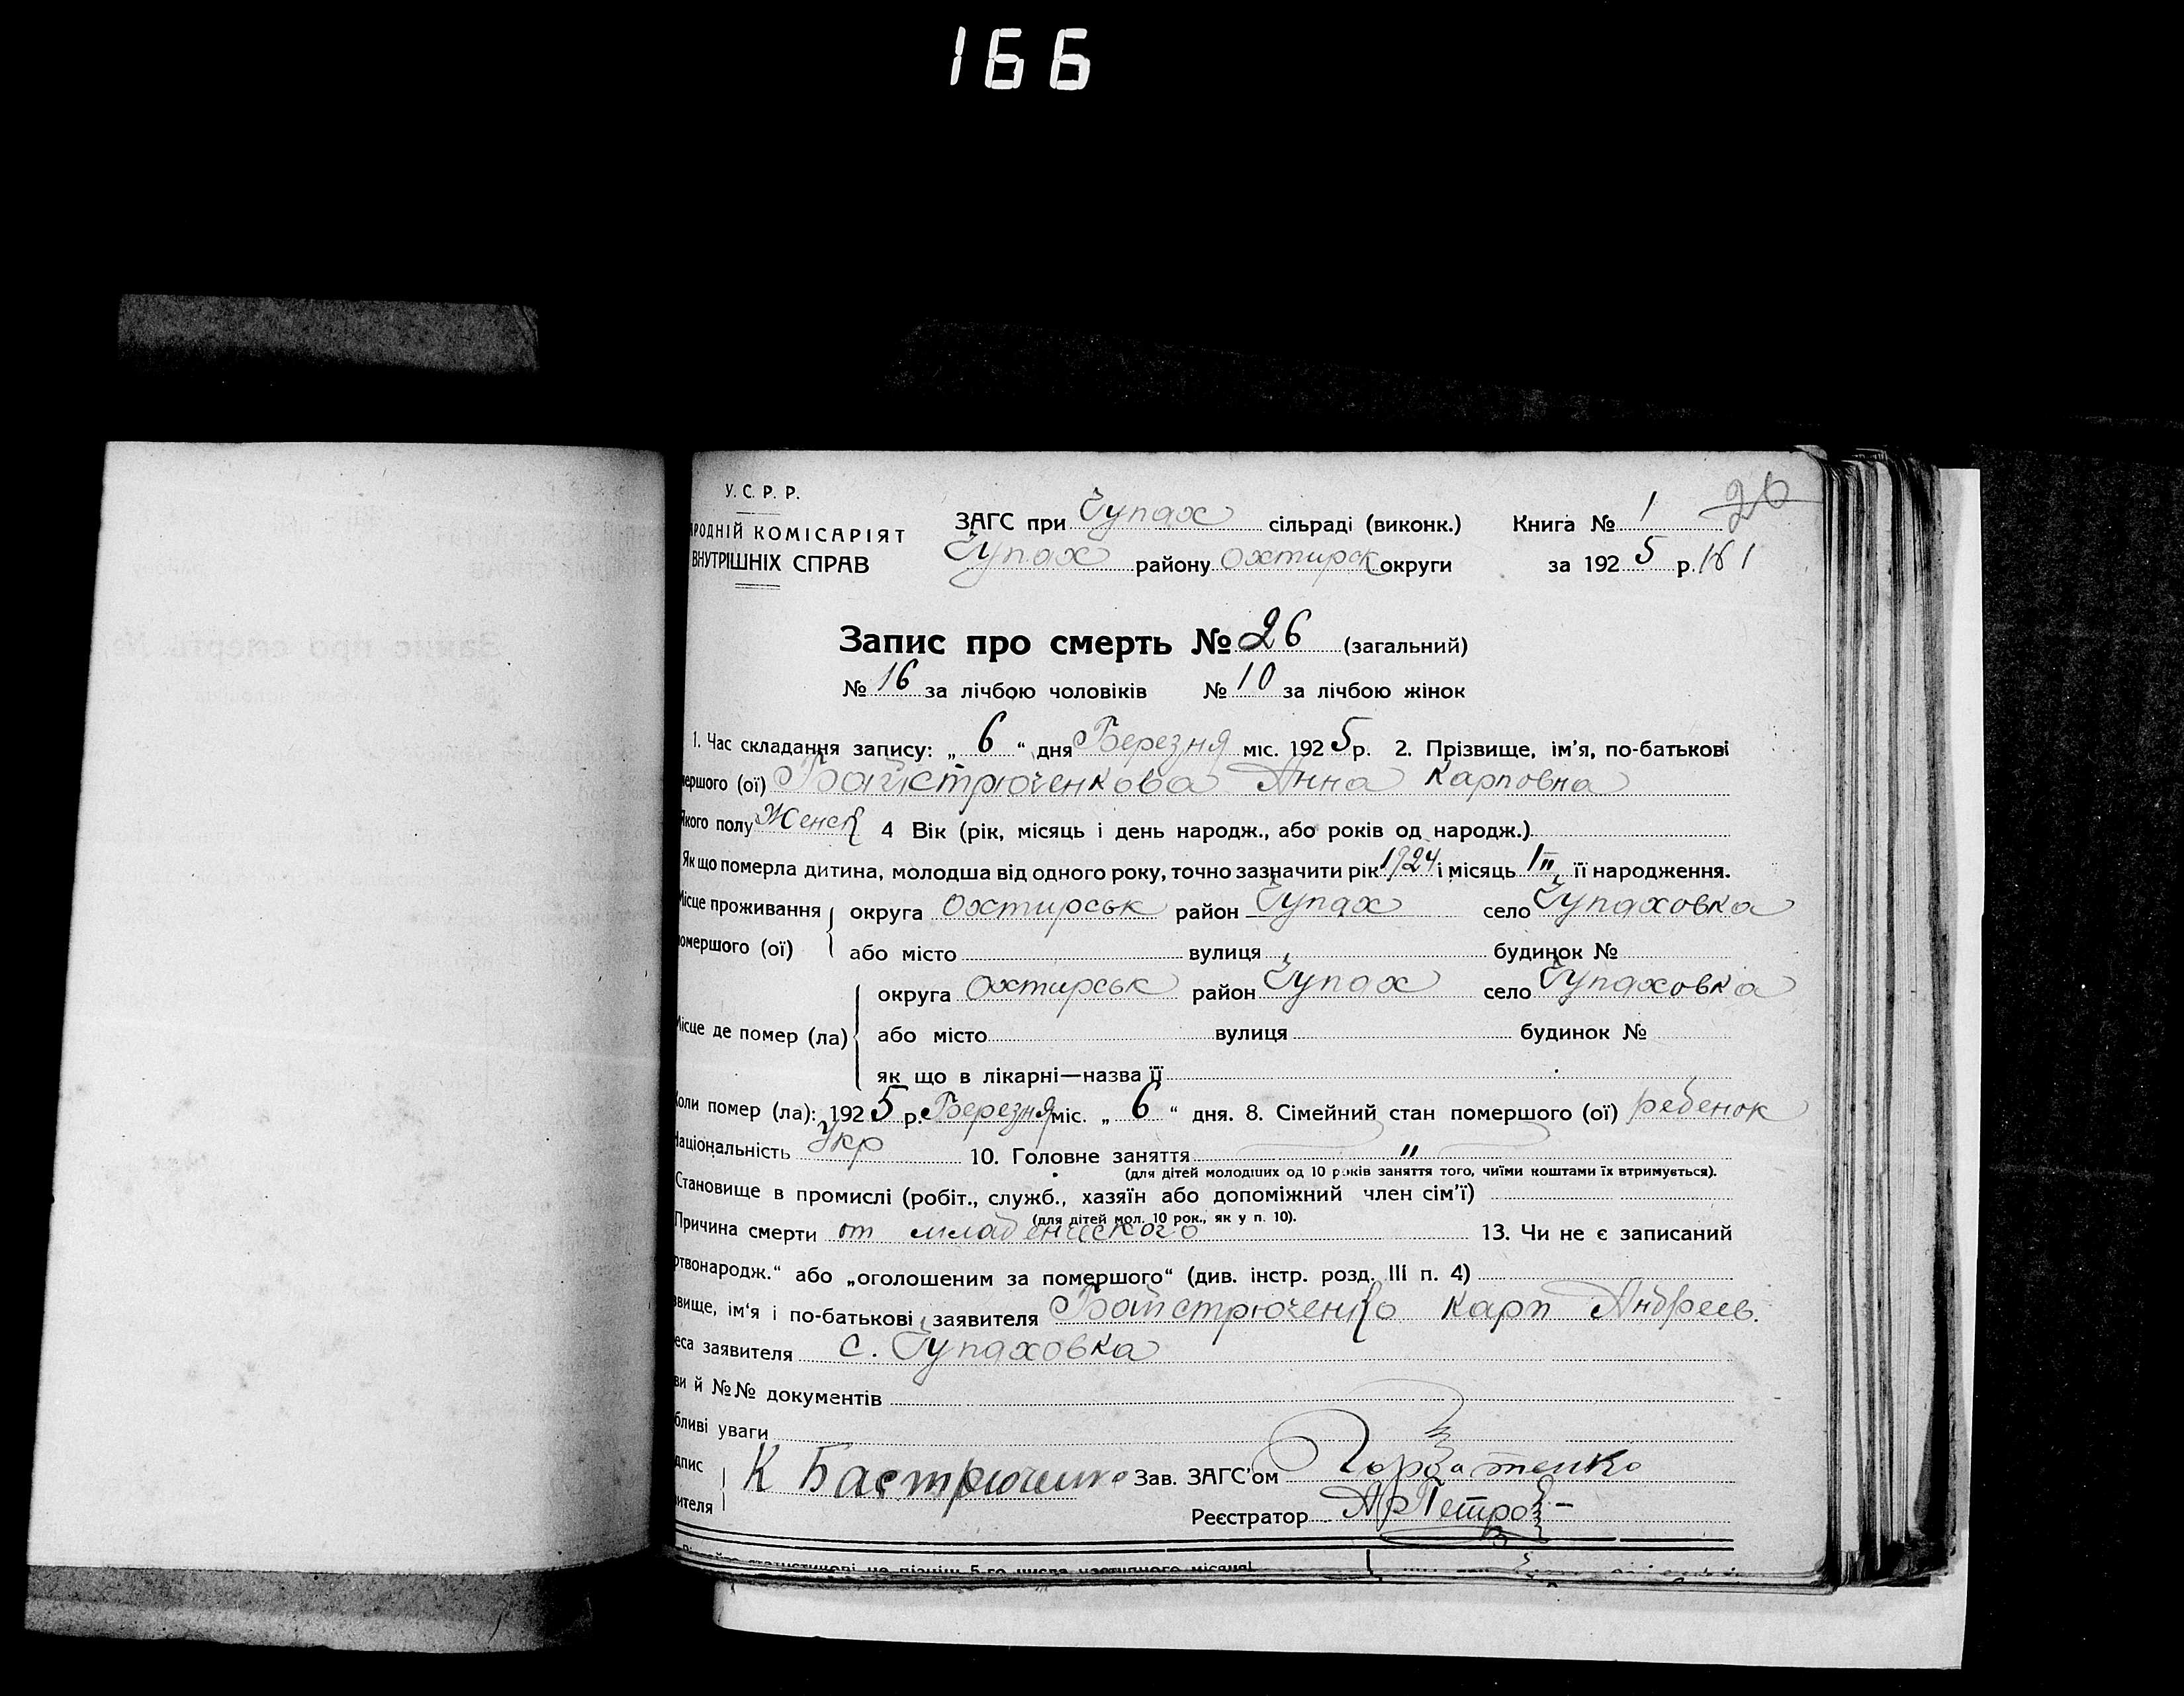 166
У. С. Р. Р.
РОДНІЙ КОМІСАРІЯТ
ВНУТРІШНІХ СПРАВ
ЗАГС при Чупах сільраді (виконк.) Книга № 1 26
Чупах району Охтирск округи за 1925 р. 161
Запис про смерть № 26 (загальний)
№ 16 за лічбою чоловіків № 10 за лічбою жінок
1. Час складання запису: „ 6 “ дня Березня міс. 1925 р. 2. Прізвище, ім'я, по-батькові
мершого (ої) Байстрюченкова Анна Карповна
якого полу Женск 4 Вік (рік, місяць і день народж., або років од народж.)
Як що померла дитина, молодша від одного року, точно зазначити рік 1924 і місяць її народження.
Місце проживання округа Охтирськ район Чупах село Чупаховка
омершого (ої) або місто вулиця будинок №
округа Охтирськ район Чупах село Чупаховка
Місце де помер (ла) або місто вулиця будинок №
як що в лікарні—назва її
Коли помер (ла): 1925 р. Березня міс. „ 6 “ дня. 8. Сімейний стан помершого (ої) ребенок
Національність Укр 10. Головне заняття "
(для дітей молодших од 10 років заняття того, чиїми коштами їх втримується).
Становище в промислі (робіт., служб., хазяїн або допоміжний член сім'ї)
(для дітей мол. 10 рок., як у п. 10).
Причина смерти от младенческого 13. Чи не є записаний
ртвонародж.“ або „оголошеним за помершого“ (див. інстр. розд. III п. 4)
звище, ім'я і по-батькові заявителя Байстрюченко Карп Андреев.
еса заявителя с. Чупаховка
ви й №№ документів
бливі уваги
дпис К Бастрюченко Зав. ЗАГС'ом
ителя Реєстратор А Петров
статистикові не пізніш 5-го числа наступного місяця!